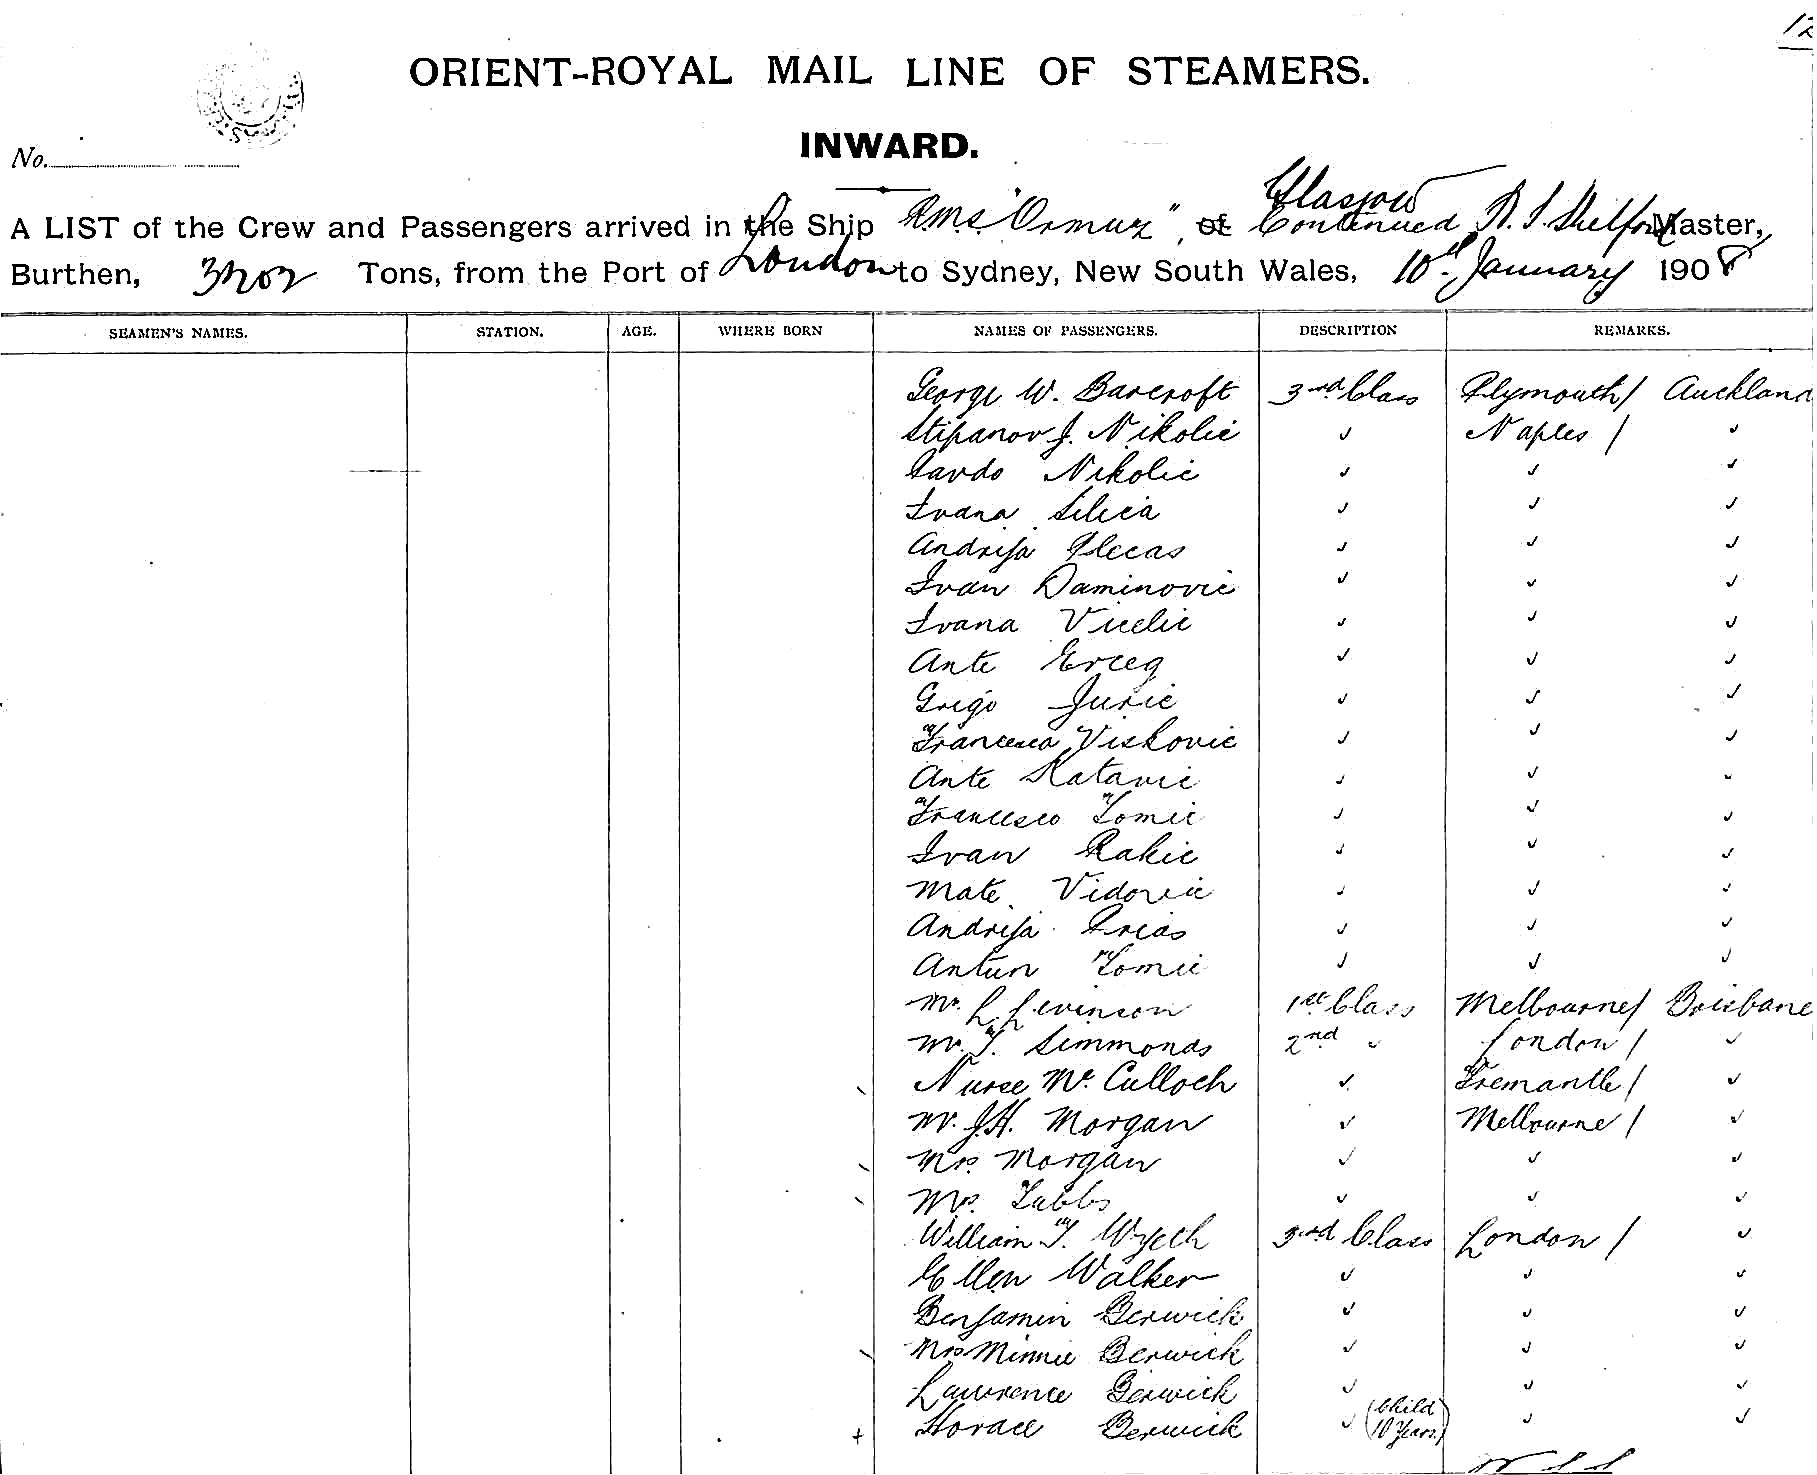 12
ORIENT-ROYAL MAIL LINE OF STEAMERS.
INWARD.
No.
Glasgow
A LIST of the Crew and Passengers arrived in the Ship RMS "Ormuz", of Continued Master,
Burthen, Tons, from the Port of London to Sydney, New South Wales, 10th January 1908
SEAMEN'S NAMES. STATION. AGE. WHERE BORN NAMES OF PASSENGERS. DESCRIPTION REMARKS.
George W. Barcroft 3rd Class Plymouth / Auckland
Stipanov J. Nikolic " Naples / "
Nikolic " " "
Ivana " " "
Andrija Plecas " " "
Ivan Daminovic " " "
Ivana Vicelic " " "
Ante Erceg " " "
Grigo Juric " " "
Francesco Viskovic " " "
Ante Katavic " " "
Francesco Tomic " " "
Ivan Rakic " " "
Mate Vidovic " " "
Andrija " " "
Antun Tomic " " "
Mr. L. Levinson 1st Class Melbourne / Brisbane
Mr. T. Simmonds 2nd " London / "
Nurse McCulloch " Fremantle / "
Mr. J.H. Morgan " Melbourne / "
Mrs. Morgan " " "
Tubbs " " "
William T. Wyeth 3rd Class London / "
Ellen Walker " " "
Benjamin Berwick " " "
Mrs Minnie Berwick " " "
Lawrence Berwick " " "
Horace Berwick " (Child 10 Years.) " "